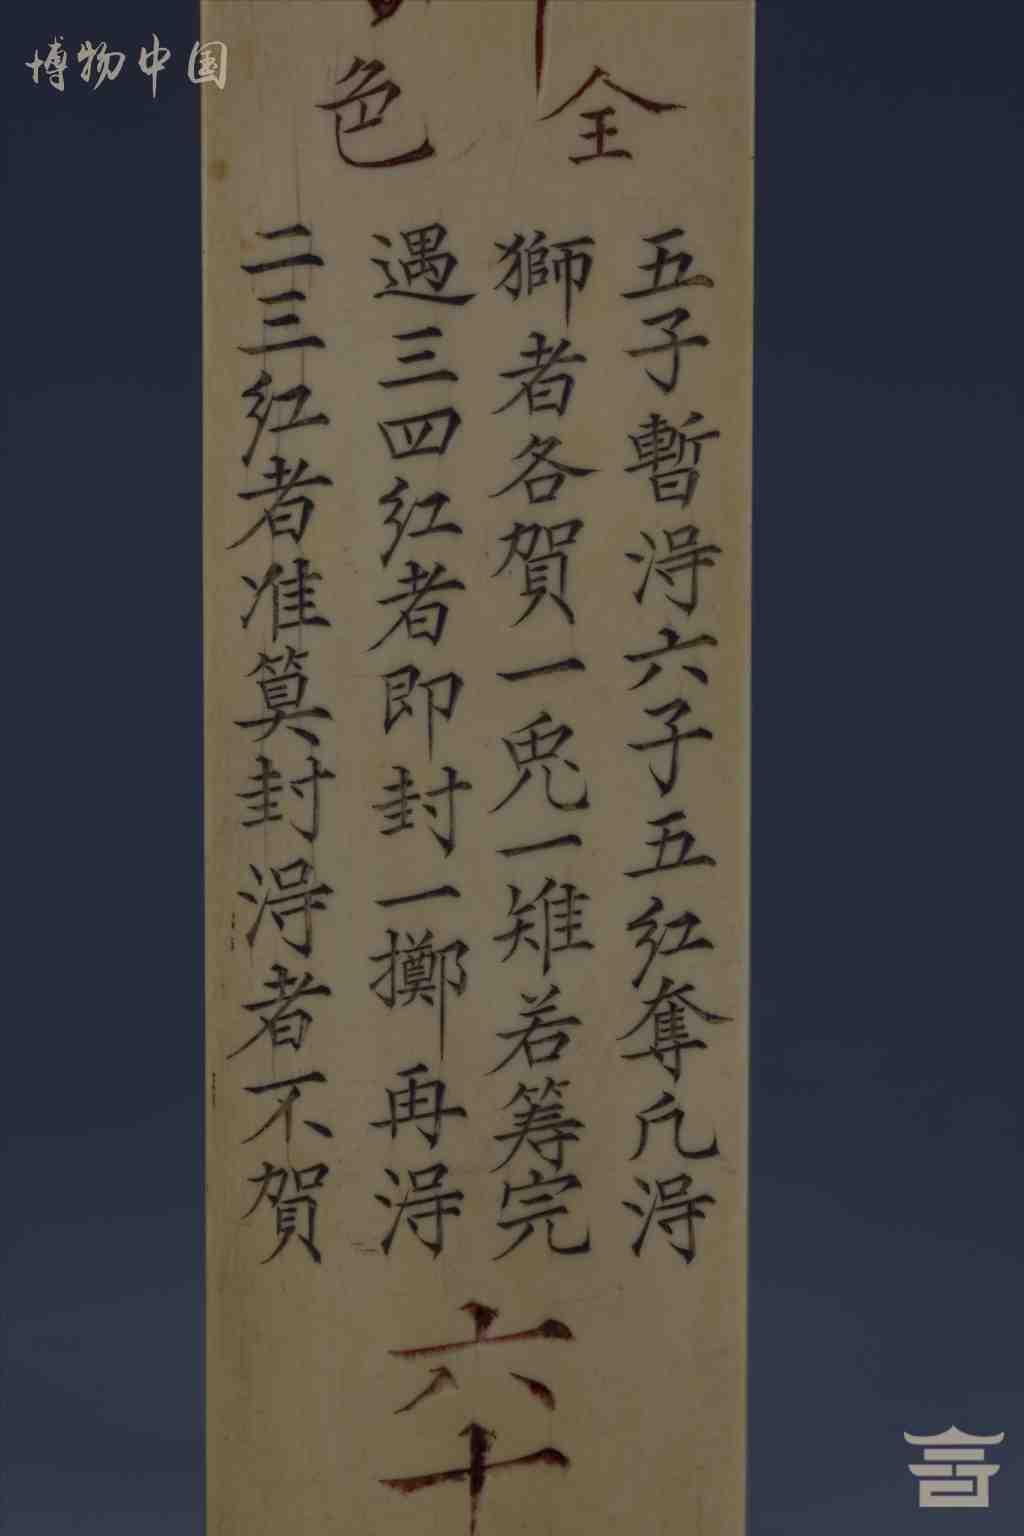 博物中国
全色
五子暫淂六子五紅奪凢淂
獅者各賀一兎一雉若筭完
遇三四紅者即封一擲再淂
二三紅者准算封淂者不賀
六十